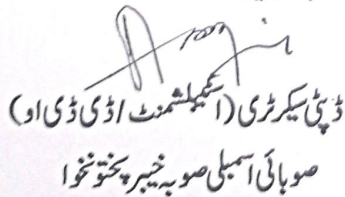 ڈپٹی سیکرٹری (اسٹیبلشمنٹ / ڈی ڈی او)
صوبائی اسمبلی صوبہ خیبر پختونخوا